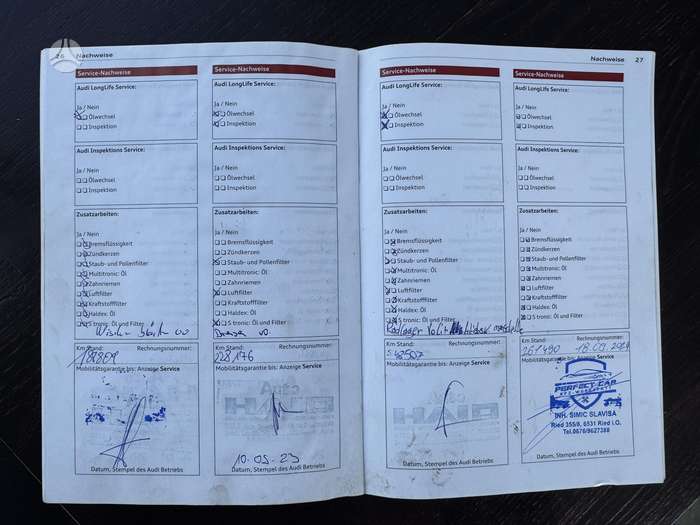 26 Nachweise
Service-Nachweise
Audi LongLife Service:
Ja / Nein
Ölwechsel
Inspektion
Audi Inspektions Service:
Ja / Nein
Ölwechsel
Inspektion
Zusatzarbeiten:
Ja / Nein
Bremsflüssigkeit
Zündkerzen
Staub- und Pollenfilter
Multitronic: Öl
Zahnriemen
Luftfilter
Kraftstofffilter
Haldex: Öl
S tronic: Öl und Filter
Km Stand: Rechnungsnummer:
Mobilitätsgarantie bis: Anzeige Service
Datum, Stempel des Audi Betriebs
Service-Nachweise
Audi LongLife Service:
Ja / Nein
Ölwechsel
Inspektion
Audi Inspektions Service:
Ja / Nein
Ölwechsel
Inspektion
Zusatzarbeiten:
Ja / Nein
Bremsflüssigkeit
Zündkerzen
Staub- und Pollenfilter
Multitronic: Öl
Zahnriemen
Luftfilter
Kraftstofffilter
Haldex: Öl
S tronic: Öl und Filter
Km Stand: Rechnungsnummer:
228176
Mobilitätsgarantie bis: Anzeige Service
10.05.23
Datum, Stempel des Audi Betriebs
Nachweise 27
Service-Nachweise
Audi LongLife Service:
Ja / Nein
Ölwechsel
Inspektion
Audi Inspektions Service:
Ja / Nein
Ölwechsel
Inspektion
Zusatzarbeiten:
Ja / Nein
Bremsflüssigkeit
Zündkerzen
Staub- und Pollenfilter
Multitronic: Öl
Zahnriemen
Luftfilter
Kraftstofffilter
Haldex: Öl
S tronic: Öl und Filter
Km Stand: Rechnungsnummer:
Mobilitätsgarantie bis: Anzeige Service
Datum, Stempel des Audi Betriebs
Service-Nachweise
Audi LongLife Service:
Ja / Nein
Ölwechsel
Inspektion
Audi Inspektions Service:
Ja / Nein
Ölwechsel
Inspektion
Zusatzarbeiten:
Ja / Nein
Bremsflüssigkeit
Zündkerzen
Staub- und Pollenfilter
Multitronic: Öl
Zahnriemen
Luftfilter
Kraftstofffilter
Haldex: Öl
S tronic: Öl und Filter
Km Stand: Rechnungsnummer:
Mobilitätsgarantie bis: Anzeige Service
PERFECT CAR
INH. SIMIC SLAVISA
Ried 355/8, 6531 Ried i.O.
Tel.0676/9627388
Datum, Stempel des Audi Betriebs